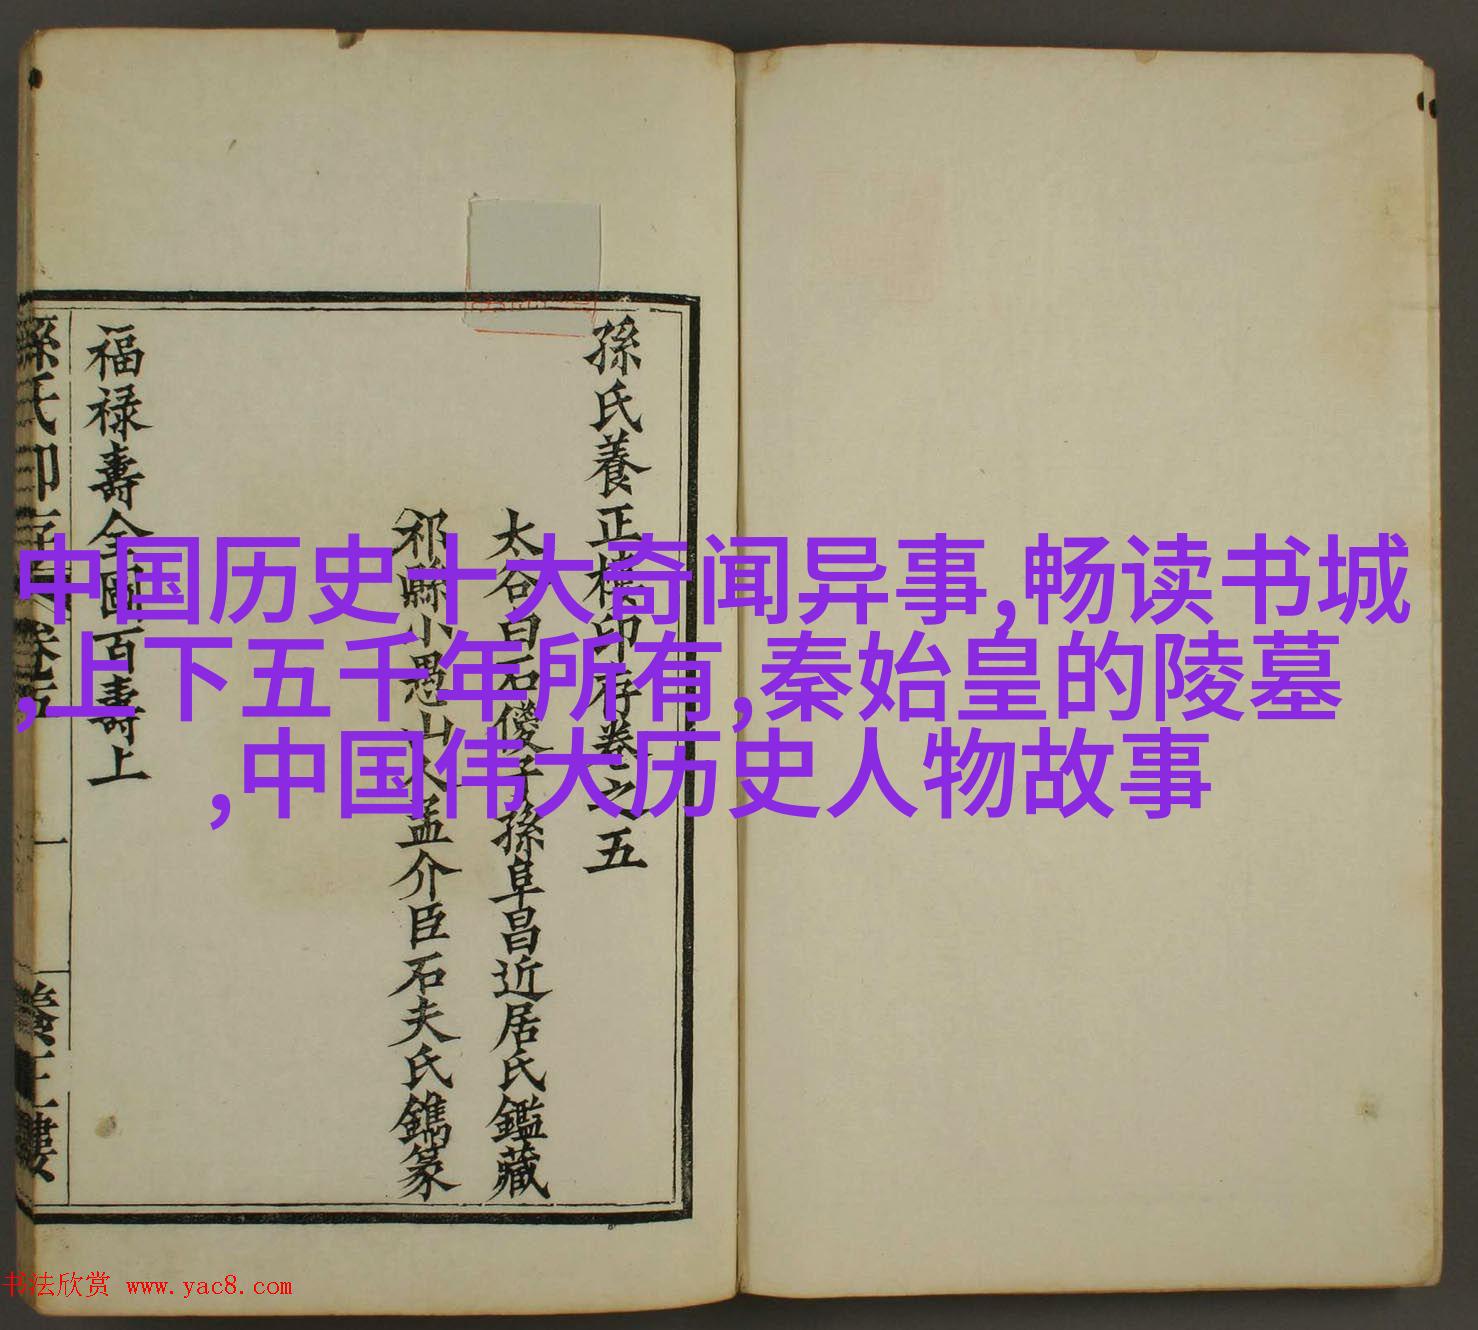 孫氏養正樓印存卷之五
太谷白石傁子孫阜昌近居氏鑑藏
祁縣小愚山人孟介臣石夫氏鐫篆
福禄壽全圖百壽上
孫氏印存 卷五
一
養正樓
中国历史十大奇闻异事,畅读书城
,上下五千年所有,秦始皇的陵墓
,中国伟大历史人物故事
书法欣赏 www.yac8.com